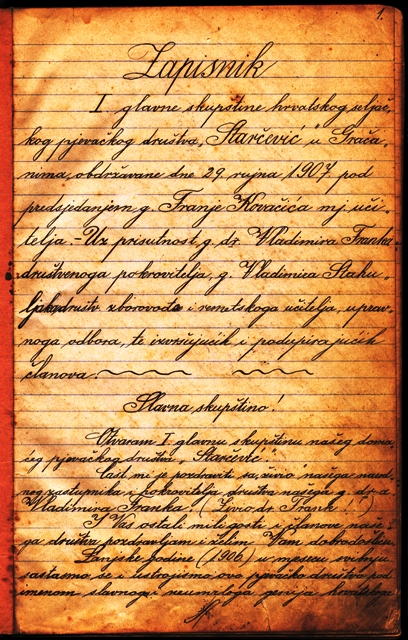 1.
Zapisnik
I. glavne skupštine hrvatskog seljač-
kog pjevačkog društva "Starčević" u Grača-
nima, obdržavane dne 29. rujna 1907. pod
predsjedanjem g. Franje Kovačića mj. uči-
telja. - Uz prisutnost g. dr. Vladimira Franka
društvenoga pokrovitelja, g. Vladimira Stahu-
ljaka društv. zborovođe i remetskoga učitelja, uprav-
noga odbora, te izvršujućih i podupirajućih
članova.
Slavna skupštino!
Otvaram I. glavnu skupštinu našeg doma-
ćeg pjevačkog društva "Starčević"
Čast mi je pozdraviti sa "živio" našega narod-
nog zastupnika i pokrovitelja društva našega g. dr. a
Vladimira Franka. (Živio dr. Frank!)
I Vas ostali mili gosti i članove naše-
ga društva pozdravljam i želim Vam dobrodošlicu
Lanjske godine (1906) u mjesecu svibnju
sastasmo se i ustrojismo ovo pjevačko društvo pod
imenom slavnog i neumrloga genija hrvatskoga